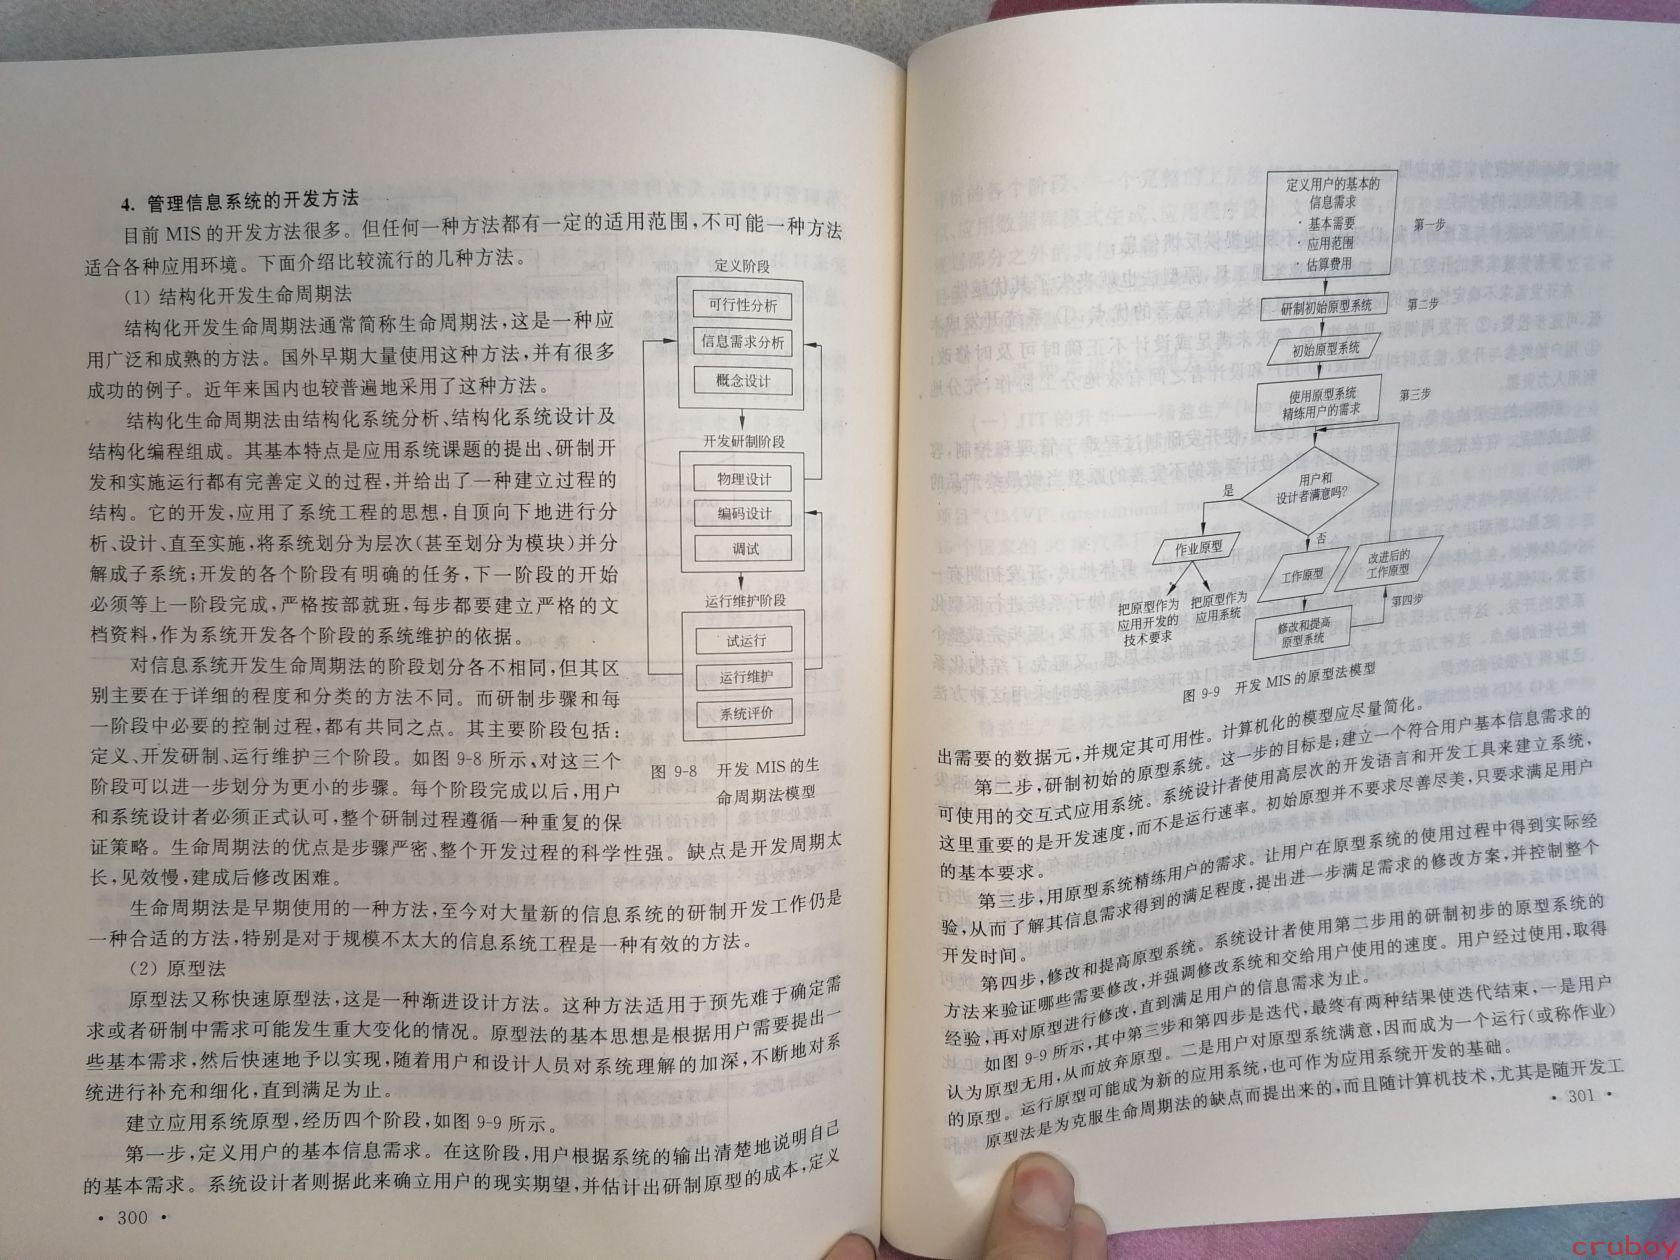 4. 管理信息系统的开发方法
目前 MIS 的开发方法很多。但任何一种方法都有一定的适用范围,不可能一种方法
适合各种应用环境。下面介绍比较流行的几种方法。
(1) 结构化开发生命周期法
结构化开发生命周期法通常简称生命周期法,这是一种应
用广泛和成熟的方法。国外早期大量使用这种方法,并有很多
成功的例子。近年来国内也较普遍地采用了这种方法。
结构化生命周期法由结构化系统分析、结构化系统设计及
结构化编程组成。其基本特点是应用系统课题的提出、研制开
发和实施运行都有完善定义的过程,并给出了一种建立过程的
结构。它的开发,应用了系统工程的思想,自顶向下地进行分
析、设计、直至实施,将系统划分为层次(甚至划分为模块)并分
解成子系统;开发的各个阶段有明确的任务,下一阶段的开始
必须等上一阶段完成,严格按部就班,每步都要建立严格的文
档资料,作为系统开发各个阶段的系统维护的依据。
对信息系统开发生命周期法的阶段划分各不相同,但其区
别主要在于详细的程度和分类的方法不同。而研制步骤和每
一阶段中必要的控制过程,都有共同之点。其主要阶段包括:
定义、开发研制、运行维护三个阶段。如图 9-8 所示,对这三个
阶段可以进一步划分为更小的步骤。每个阶段完成以后,用户
和系统设计者必须正式认可,整个研制过程遵循一种重复的保
证策略。生命周期法的优点是步骤严密、整个开发过程的科学性强。缺点是开发周期太
长,见效慢,建成后修改困难。
定义阶段
可行性分析
信息需求分析
概念设计
开发研制阶段
物理设计
编码设计
调试
运行维护阶段
试运行
运行维护
系统评价
图 9-8 开发 MIS 的生
命周期法模型
生命周期法是早期使用的一种方法,至今对大量新的信息系统的研制开发工作仍是
一种合适的方法,特别是对于规模不太大的信息系统工程是一种有效的方法。
(2) 原型法
原型法又称快速原型法,这是一种渐进设计方法。这种方法适用于预先难于确定需
求或者研制中需求可能发生重大变化的情况。原型法的基本思想是根据用户需要提出一
些基本需求,然后快速地予以实现,随着用户和设计人员对系统理解的加深,不断地对系
统进行补充和细化,直到满足为止。
建立应用系统原型,经历四个阶段,如图 9-9 所示。
第一步,定义用户的基本信息需求。在这阶段,用户根据系统的输出清楚地说明自己
的基本需求。系统设计者则据此来确立用户的现实期望,并估计出研制原型的成本,定义
· 300 ·
定义用户的基本的
信息需求
· 基本需要
· 应用范围
· 估算费用
第一步
研制初始原型系统
第二步
初始原型系统
使用原型系统
精练用户的需求
第三步
用户和
设计者满意吗?
是
否
作业原型
工作原型
改进后的
工作原型
把原型作为
应用开发的
技术要求
把原型作为
应用系统
修改和提高
原型系统
第四步
图 9-9 开发 MIS 的原型法模型
出需要的数据元,并规定其可用性。计算机化的模型应尽量简化。
第二步,研制初始的原型系统。这一步的目标是:建立一个符合用户基本信息需求的
可使用的交互式应用系统。系统设计者使用高层次的开发语言和开发工具来建立系统,
这里重要的是开发速度,而不是运行速率。初始原型并不要求尽善尽美,只要求满足用户
的基本要求。
第三步,用原型系统精练用户的需求。让用户在原型系统的使用过程中得到实际经
验,从而了解其信息需求得到的满足程度,提出进一步满足需求的修改方案,并控制整个
开发时间。
第四步,修改和提高原型系统。系统设计者使用第二步用的研制初步的原型系统的
方法来验证哪些需要修改,并强调修改系统和交给用户使用的速度。用户经过使用,取得
经验,再对原型进行修改,直到满足用户的信息需求为止。
如图 9-9 所示,其中第三步和第四步是迭代,最终有两种结果使迭代结束,一是用户
认为原型无用,从而放弃原型。二是用户对原型系统满意,因而成为一个运行(或称作业)
的原型。运行原型可能成为新的应用系统,也可作为应用系统开发的基础。
原型法是为克服生命周期法的缺点而提出来的,而且随计算机技术,尤其是随开发工
· 301 ·
cruboy